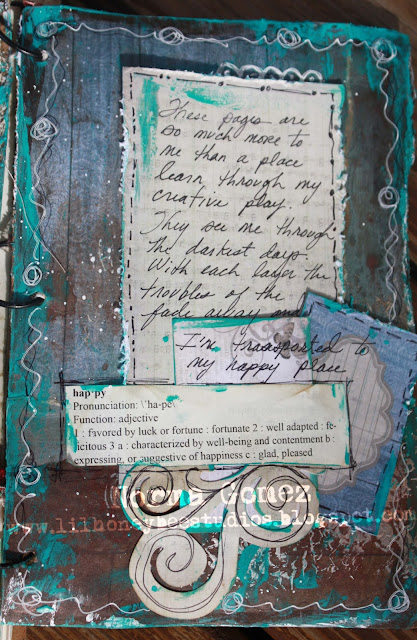 These pages are
so much more to
me than a place
learn through my
creative play.
They see me through
the darkest days.
With each layer the
troubles of the
fade away and
I'm transported to
my happy place
hap·py
Pronunciation: \ˈha-pē\
Function: adjective
1 : favored by luck or fortune : fortunate 2 : well adapted : fe-
licitous 3 a : characterized by well-being and contentment b :
expressing, or suggestive of happiness c : glad, pleased
Gomez
www.lilhoneybeestudios.blogspot.com